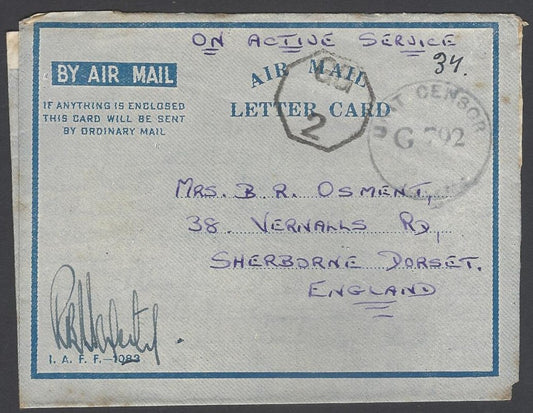 ON ACTIVE SERVICE
34.
BY AIR MAIL
AIR MAIL
LETTER CARD
IF ANYTHING IS ENCLOSED
THIS CARD WILL BE SENT
BY ORDINARY MAIL
2
UNIT CENSOR
G 792
MRS. B. R. OSMENT,
38. VERNALLS RD,
SHERBORNE DORSET.
ENGLAND
I. A. F. F.-1083